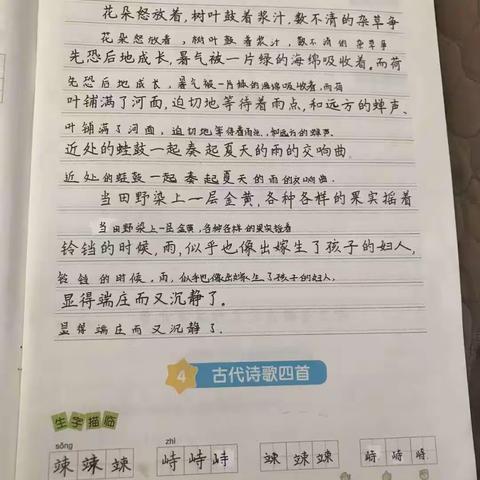 花朵怒放着,树叶鼓着浆汁,数不清的杂草争
花朵怒放着,树叶鼓着浆汁,数不清的杂草争
先恐后地成长,暑气被一片绿的海绵吸收着。而荷
先恐后地成长,暑气被一片绿的海绵吸收着,而荷
叶铺满了河面,迫切地等待着雨点,和远方的蝉声、
叶铺满了河面,迫切地等待着雨点,和远方的蝉声、
近处的蛙鼓一起奏起夏天的雨的交响曲。
近处的蛙鼓一起奏起夏天的雨的交响曲.
当田野染上一层金黄,各种各样的果实摇着
当田野染上一层金黄,各种各样的果实摇着
铃铛的时候,雨,似乎也像出嫁生了孩子的妇人,
铃铛的时候,雨,似乎也像出嫁生了孩子的妇人,
显得端庄而又沉静了。
显得端庄而又沉静了.
4 古代诗歌四首
生字描临
sǒng zhì
竦 竦 竦 峙 峙 峙 竦 竦 竦 峙 峙 峙